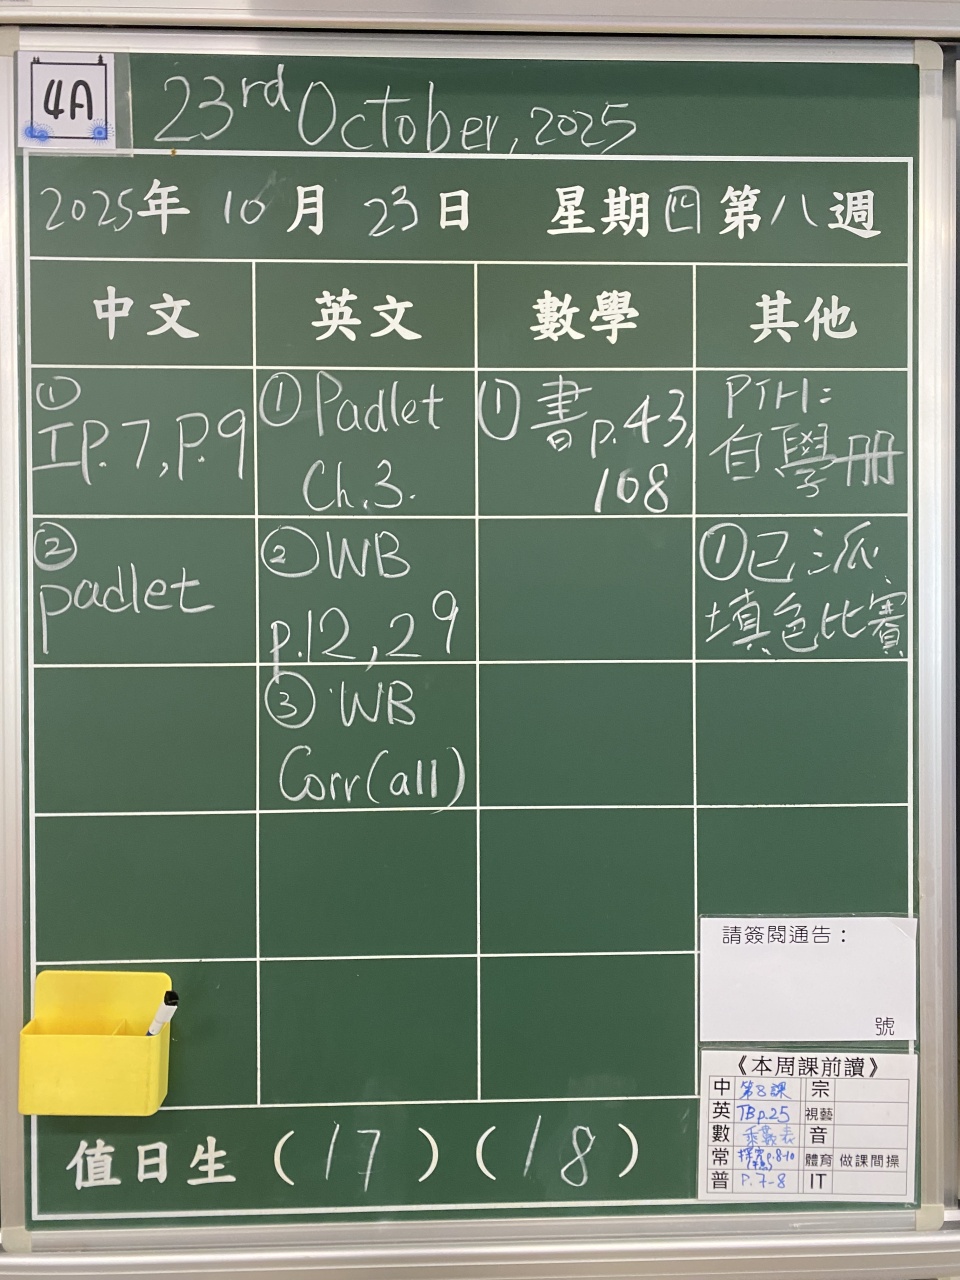 4A
23rd October, 2025
2025年 10月 23日 星期四 第八週
中文
英文
數學
其他
①
工P.7,P.9
②
padlet
① Padlet
Ch.3.
② WB
p.12,29
③ WB
Corr(all)
① 書p.43,
108
PTH:
自學册
①已派
填色比賽
請簽閱通告：
號
《本周課前讀》
中 第8課 宗
英 TB p.25 視藝
數 乘數表 音
常 探究p.8-10 體育 做課間操
普 P.7-8 IT
值日生 (17) (18)